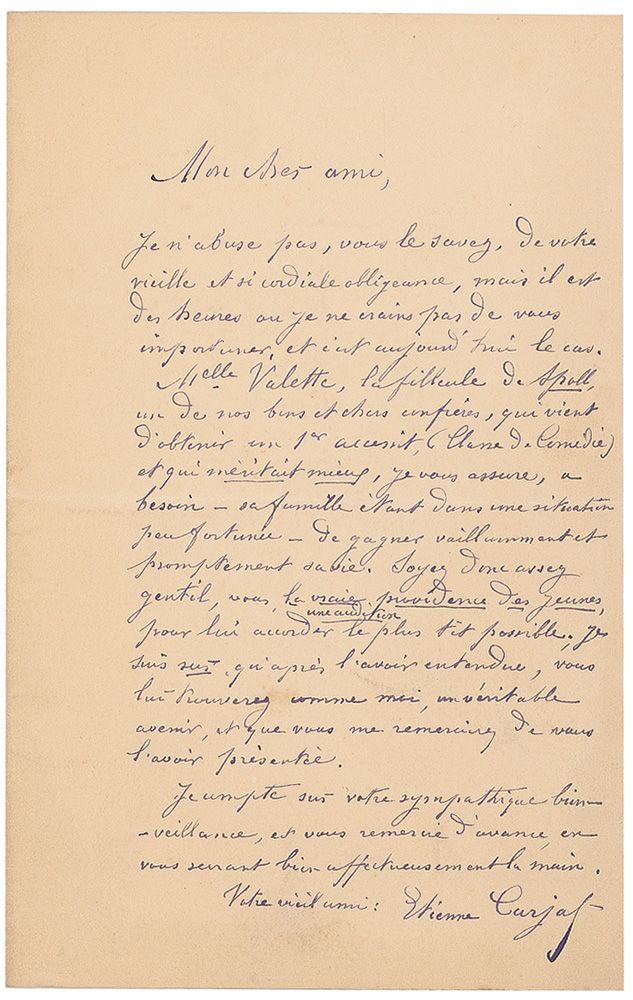 Mon cher ami,
Je n'abuse pas, vous le savez, de votre
vieille et si cordiale obligeance, mais il est
des heures où je ne crains pas de vous
importuner, et c'est aujourd'hui le cas.
Melle Valette, la filleule de Spoll,
un de nos bons et chers confrères, qui vient
d'obtenir un 1er accessit, (Classe de Comédie)
et qui méritait mieux, je vous assure, a
besoin – sa famille étant dans une situation
peu fortunée – de gagner vaillamment et
promptement sa vie. Soyez donc assez
gentil, vous, la vraie providence des jeunes,
une audition
pour lui accorder le plus tôt possible. Je
suis sûr, qu'après l'avoir entendue, vous
lui trouverez comme moi, un véritable
avenir, et que vous me remercierez de vous
l'avoir présentée.
Je compte sur votre sympathique bien-
-veillance, et vous remercie d'avance en
vous serrant bien affectueusement la main.
Votre vieil ami : Etienne Carjat